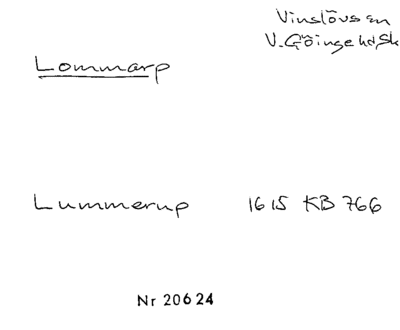 Vinslövs sn
V. Göinge hd, Sk
Lommarp
Lummerup 1615 KB 766
Nr 20624